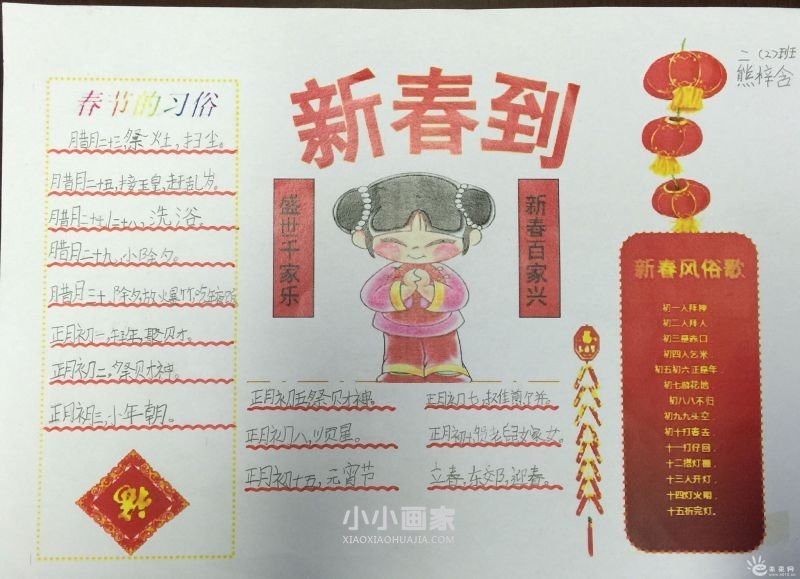 二(2)班
熊梓含
新春到
春节的习俗
腊月二十三,祭灶,扫尘。
腊月二十五,接玉皇,赶乱岁。
腊月二十七/二十八,洗浴。
腊月二十九,小除夕。
腊月三十,除夕放爆竹吃年夜饭
正月初一,年聚财。
正月初二,祭财神。
正月初三,小年朝。
福
盛世千家乐
新春百家兴
正月初五祭财神。
正月初七,
正月初八,顺星。
正月初十,老鼠嫁女。
正月初十五,元宵节
立春,东郊,迎春。
新春风俗歌
初一人拜神
初二人拜人
初三是赤口
初四人乞米
初五初六正是年
初七游花地
初八八不归
初九九头空
初十打春去
十一打仔回
十二搭灯棚
十三人开灯
十四灯火明
十五祈完灯.
小小画家
XIAOXIAOHUAJIA.COM
未来网